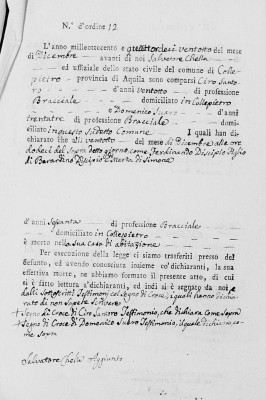 N.° d'ordine 12
L'anno milleottocento e quattordeci ventotto del mese
di Dicembre avanti di noi Salvatore Chella
ed uffiziale dello stato civile del comun di Colle-
pietro provincia di Aquila sono comparsi Ciro Santo-
ro d'anni ventotto di professione
Bracciale domiciliato in Collepietro
e Domenico Suero d'anni
trentatre di professione Bracciale domi-
ciliato in questo sudetto Comune I quali han di-
chiarato che li ventotto del mese di Dicembre alle ore
del sudetto giorno come Ferdinando Discipio figlio
di Berardino Discipio Ettorta di Simone
d'anni Sessanta di professione Bracciale
domiciliato in Collepietro
è morto nella sua casa di abitazione
Per esecuzione della legge ci siamo trasferiti presso del
defunto, ed avendo conosciuta insieme co' dichiaranti, la sua
effettiva morte, ne abbiamo formato il presente atto, di cui
si è fatto lettura a' dichiaranti, ed indi si è segnato da noi e
dalli sottoscritti Testimonj col segno di Croce, i quali hanno dichia-
rato di non sapere scrivere
+ Segno di Croce di Ciro Santoro Testimonio, che dichiara come sopra
+ Segno di Croce di Domenico Suero Testimonio, il quale dichiara co-
me sopra
Salvatore Chella Aggiunto